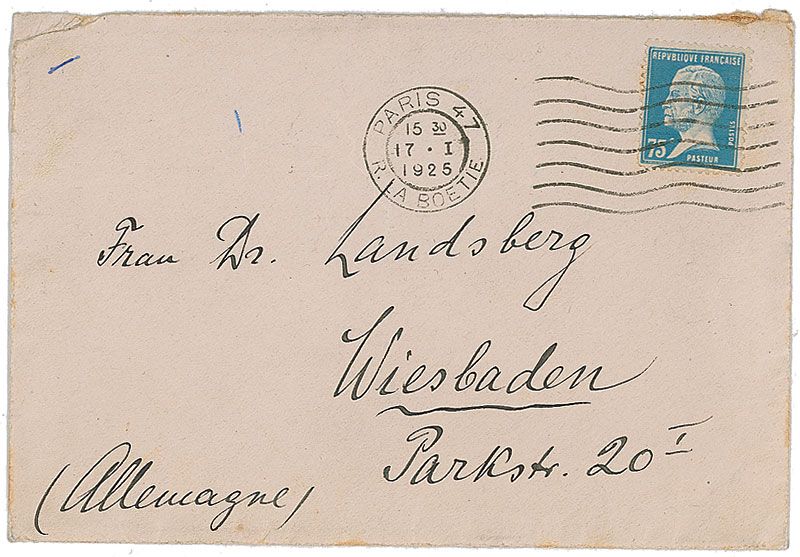 REPVBLIQUE FRANÇAISE
POSTES
75c
PASTEUR
PARIS 47
15 30
17 · I
1925
R. LA BOETIE
Frau Dr. Landsberg
Wiesbaden
Parkstr. 20 I
(Allemagne)